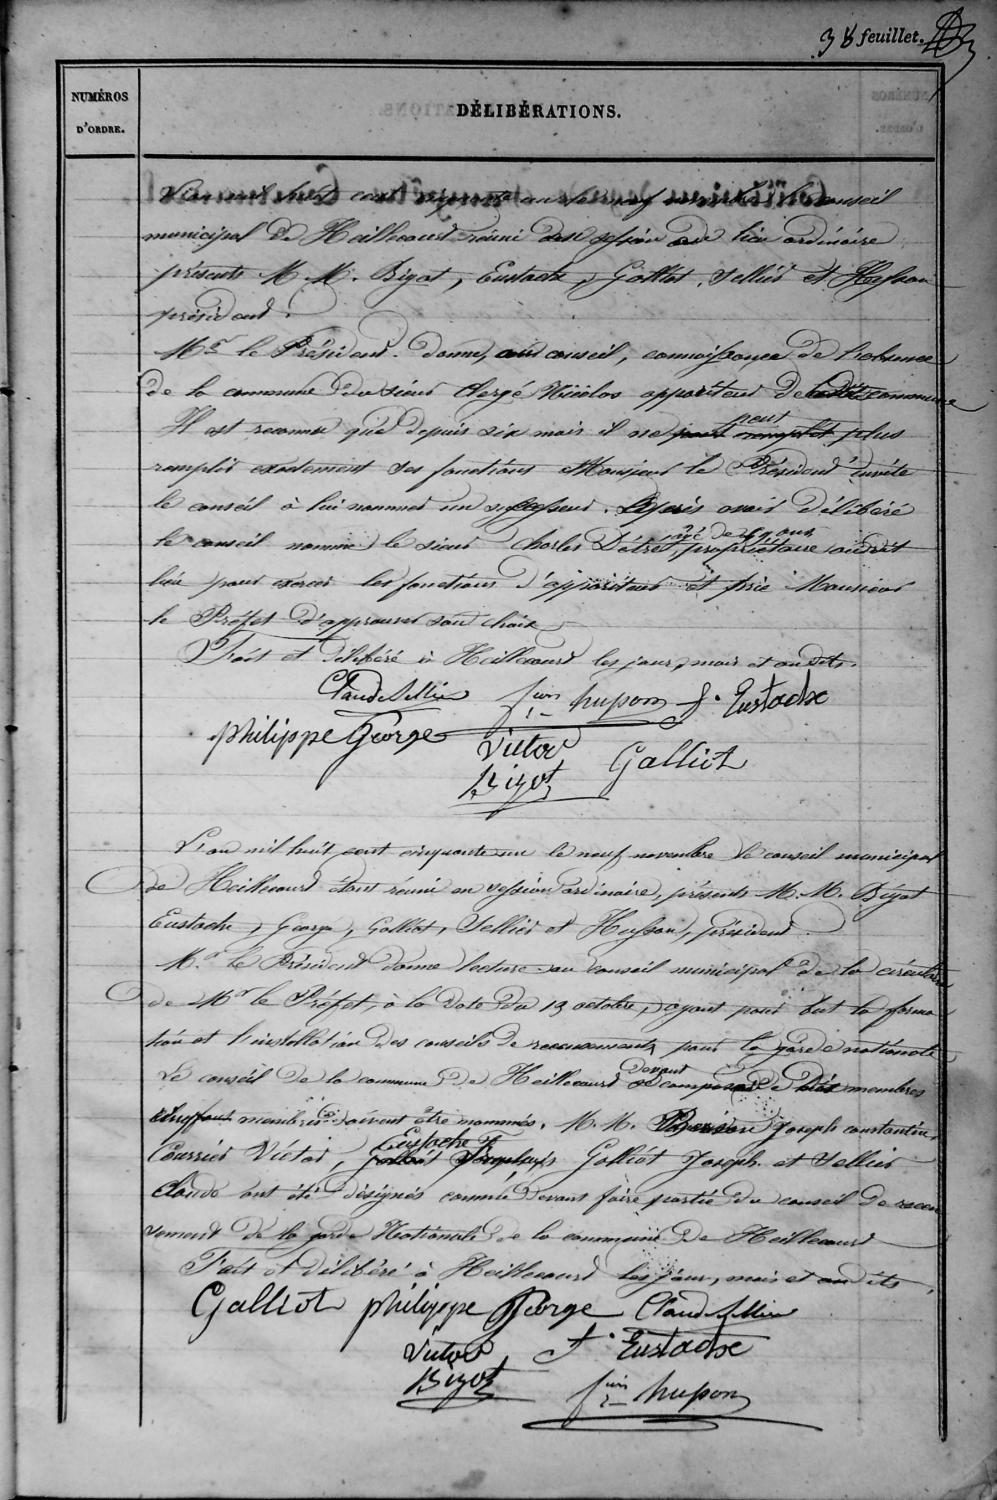 38 feuillet.
NUMÉROS
D'ORDRE.
DÉLIBÉRATIONS.
L'an mil huit cent cinquante un le neuf novembre le conseil
municipal de Heillecourt réuni en session de lieu ordinaire
présents M. M. Bizot, Eustache, Galliot, Sellier et Husson
président.
Mr le Président donne, au conseil, connaissance de l'absence
de la commune du sieur Clergé Nicolas appariteur de commune
Il est reconnu que depuis six mois il ne peut plus
remplir exactement ses fonctions Monsieur le Président invite
le conseil à lui nommer un successeur. Après avoir délibéré
le conseil nomme le sieur Charles Détré, agé de ans propriétaire audit
lieu pour exercer les fonctions d'appariteur et prie Monsieur
le Préfet d'approuver son choix
Fait et délibéré à Heillecourt les jour, mois et an dits.
Claude Sellier fcois husson f. Eustache
philippe George Victor Galliot
Bizot
L'an mil huit cent cinquante un le neuf novembre le conseil municipal
de Heillecourt étant réuni en session ordinaire, présents M. M. Bizot
Eustache, George, Galliot, Sellier et Husson, président.
M. le Président donne lecture au conseil municipal de la circulaire
de Mr le Préfet, à la date du 13 octobre, ayant pour but la forma
tion et l'installation des conseils de recensement pour la garde nationale
Le conseil de la commune de Heillecourt devant se composer de membres
cinq membres doivent être nommés. M. M. Joseph constantin,
Courrier Victor, Eustache F. Galliot Joseph et Sellier
Claude ont été désignés comme devant faire partie du conseil de recen
sement de la garde Nationale de la commune de Heillecourt
Fait et délibéré à Heillecourt les jour, mois et an dits,
Galliot philippe George Claude Sellier
Victor f. Eustache
Bizot fcois husson